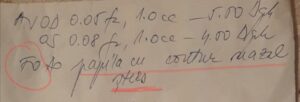 AVOD 0.05 fz, 1.0 cc — 5.00 Dph
OS 0.08 fz, 1.0 cc — 4.00 Dph
FO papila cu contur nazal
șters